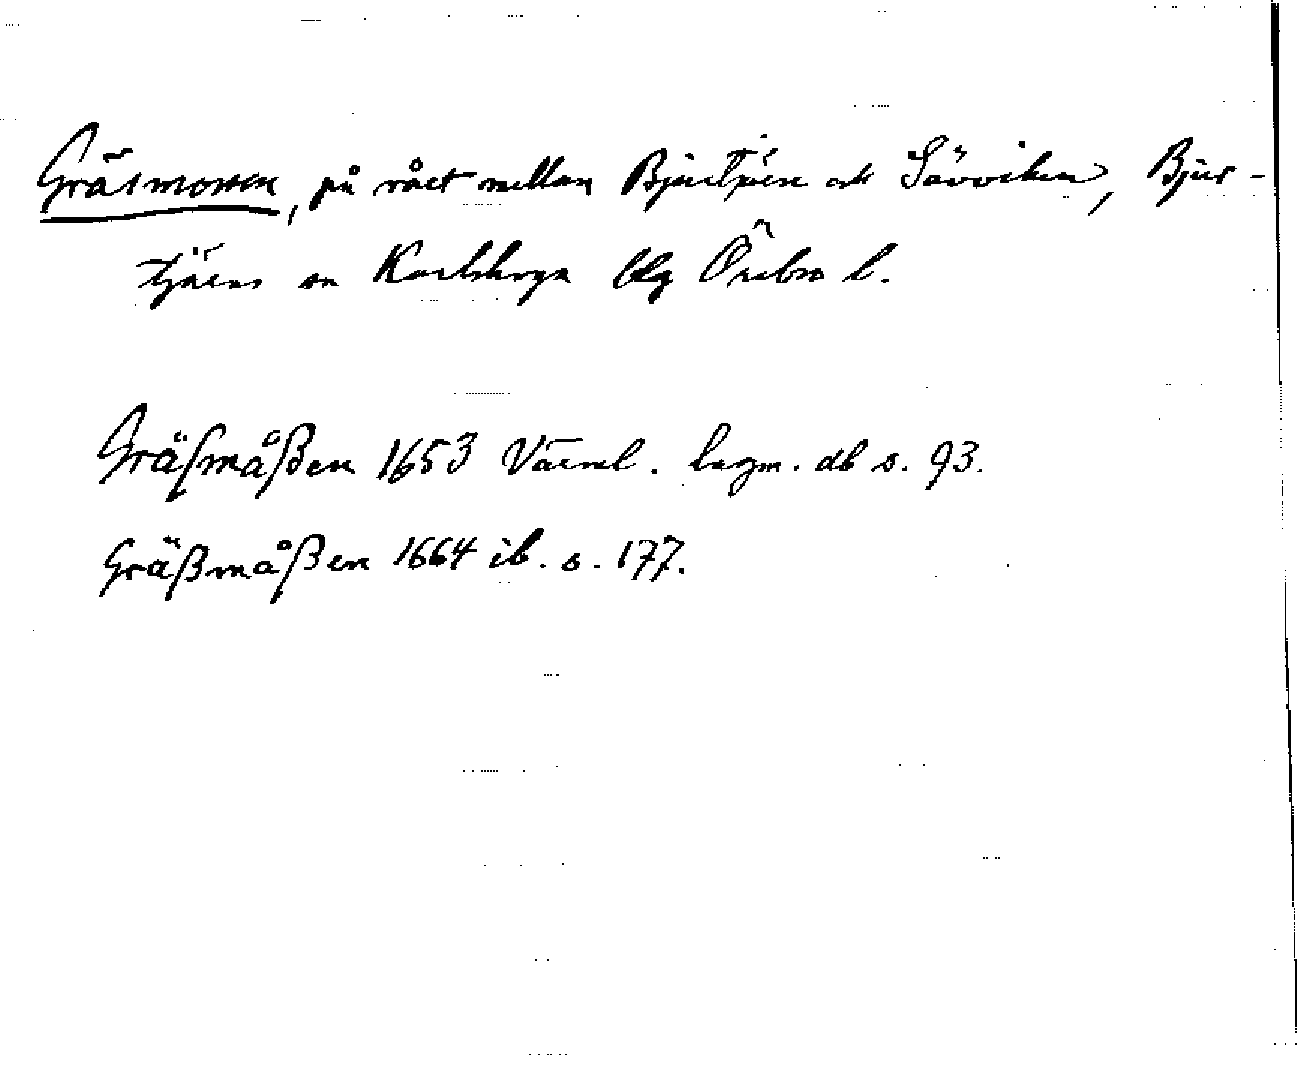 Gräsmossen, på rået mellan Bjurtjärn och Sävviken, Bjur-
tjärns sn Karlskoga blg Örebro l.
Gräſmåßen 1653 Värml. lagm. db s. 93.
Gräßmåßen 1664 ib. s. 177.